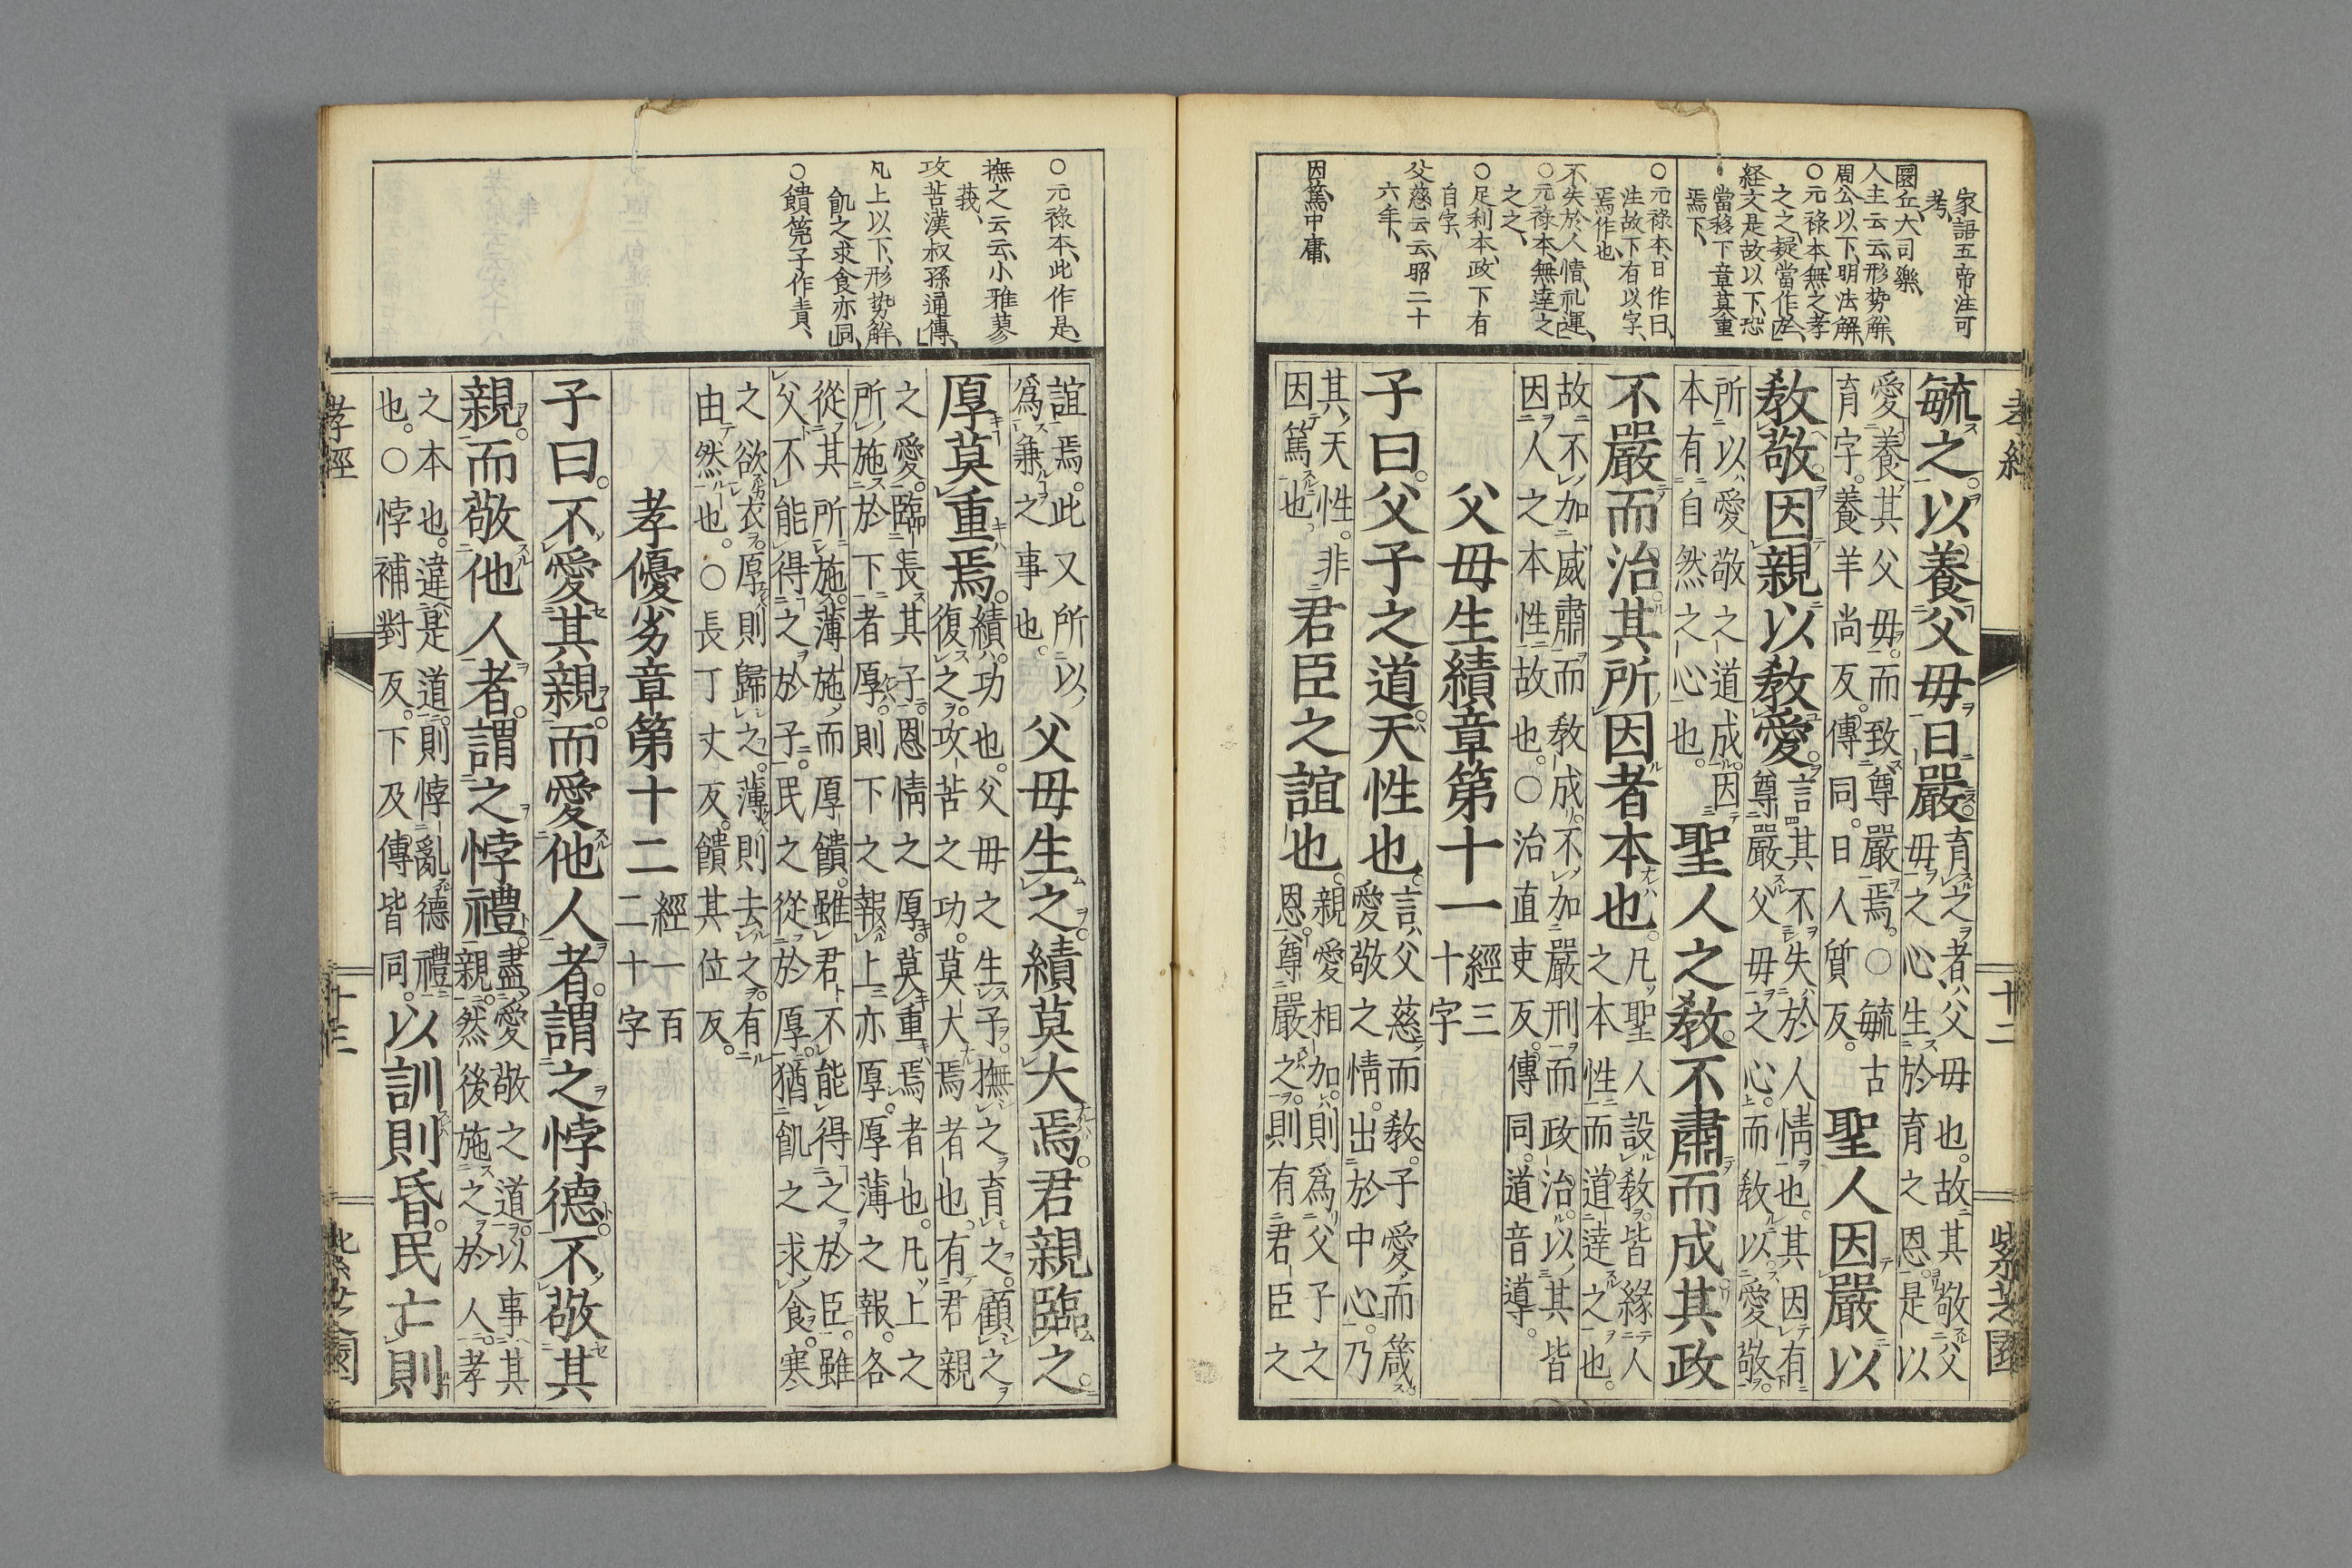 孝經 十二 紫芝園
家語五帝注可
考、
圜丘、大司樂、
人主云云、形勢解、
周公以下、明法解、
○元祿本、無之孝
之之、疑當作於、
経文是故以下、恐
當移下章莫重
焉下、
○元祿本、日作曰、
注故下有以字、
焉作也、
不失於人情、礼運、
○元祿本、無達之
之之、
○足利本、政下有
自字、
父慈云云、昭二十
六年、
因篤、中庸、
毓之。以養父母日嚴。育之者、父母也。故其敬父
母之心、生於育之恩。是以
愛養其父母。而致尊嚴焉。○毓古
育字。養羊尚反。傳同。日人質反。聖人因嚴以
教敬。因親以教愛。言其不失於人情也。其因有
尊嚴父母之心。而教以愛敬。
所以愛敬之道成。因
本有自然之心也。聖人之教。不肅而成。其政
不嚴而治。其所因者本也。凡聖人設教。皆緣人
之本性。而道達之也。
故不加威肅而教成。不加嚴刑而政治。以其皆
因人之本性故也。○治直吏反。傳同。道音導。
父母生績章第十一 經三
十字
子曰。父子之道。天性也。言父慈而教。子愛而箴。
愛敬之情。出於中心。乃
其天性。非
因篤也。君臣之誼也。親愛相加。則爲父子之
恩。尊嚴之。則有君臣之
○元祿本、此作是、
撫之云云、小雅蓼
莪、
攻苦漢叔孫通傳、
凡上以下、形勢解、
飢之求食亦同、
○饋筦子作責、
誼焉。此又所以
爲兼之事也。父母生之。績莫大焉。君親臨之。
厚莫重焉。績功也。父母之生子。撫之育之。顧之
復之。攻苦之功。莫大焉者也。有君親
之愛。臨長其子。恩情之厚。莫重焉者也。凡上之
所施於下者厚。則下之報上亦厚。厚薄之報。各
從其所施。薄施而厚饋。雖君不能得之於臣。雖
父不能得之於子。民之從於厚。猶飢之求食。寒
之欲衣。厚則歸之。薄則去之。有
由然也。○長丁丈反。饋其位反。
孝優劣章第十二 經一百
二十字
子曰。不愛其親。而愛他人者。謂之悖德。不敬其
親。而敬他人者。謂之悖禮。盡愛敬之道。以事其
親。然後施之於人。孝
之本也。違是道。則悖亂德禮
也。○悖補對反。下及傳皆同。以訓則昏。民亡則
孝經 十二 紫芝園